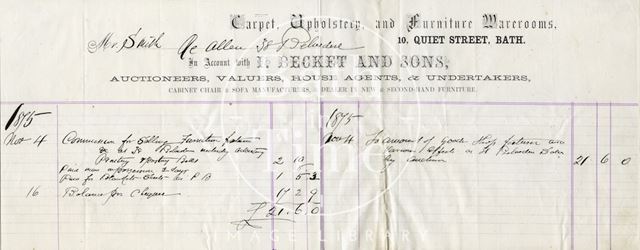 Carpet, Upholstery, and Furniture Warerooms,
10, QUIET STREET, BATH.
Mr. Smith Re Allen 38 Belvedere
In Account with I. BECKET AND SONS,
AUCTIONEERS, VALUERS, HOUSE AGENTS, & UNDERTAKERS,
CABINET CHAIR & SOFA MANUFACTURERS, & DEALER IN NEW & SECOND-HAND FURNITURE.
1875
Nov 4 Commission for Selling Furniture fixtures
&c at 38 Belvedere including advertising
Printing & Posting Bills 2 10
Paid man in possession 2 days
1 8 3
16 Balance per Cheque 17 2 9
£ 21 6 0
1875
Nov 4 To amount of goods Shop fixtures and
Effects at 38 Belvedere Sold
by auction 21 6 0